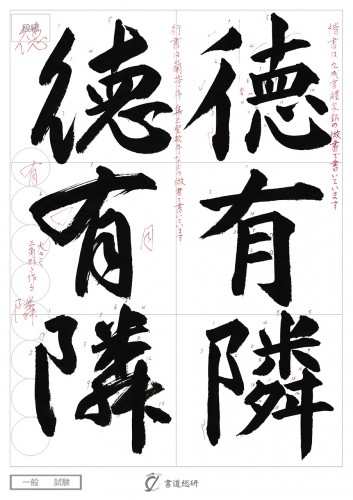 楷書は九成宮醴泉銘の倣書で書いています
徳有隣
行書は蘭亭序、集王聖教序などの倣書で書いています
徳有隣
月
徳
有
隣
一般 試験
書道総研